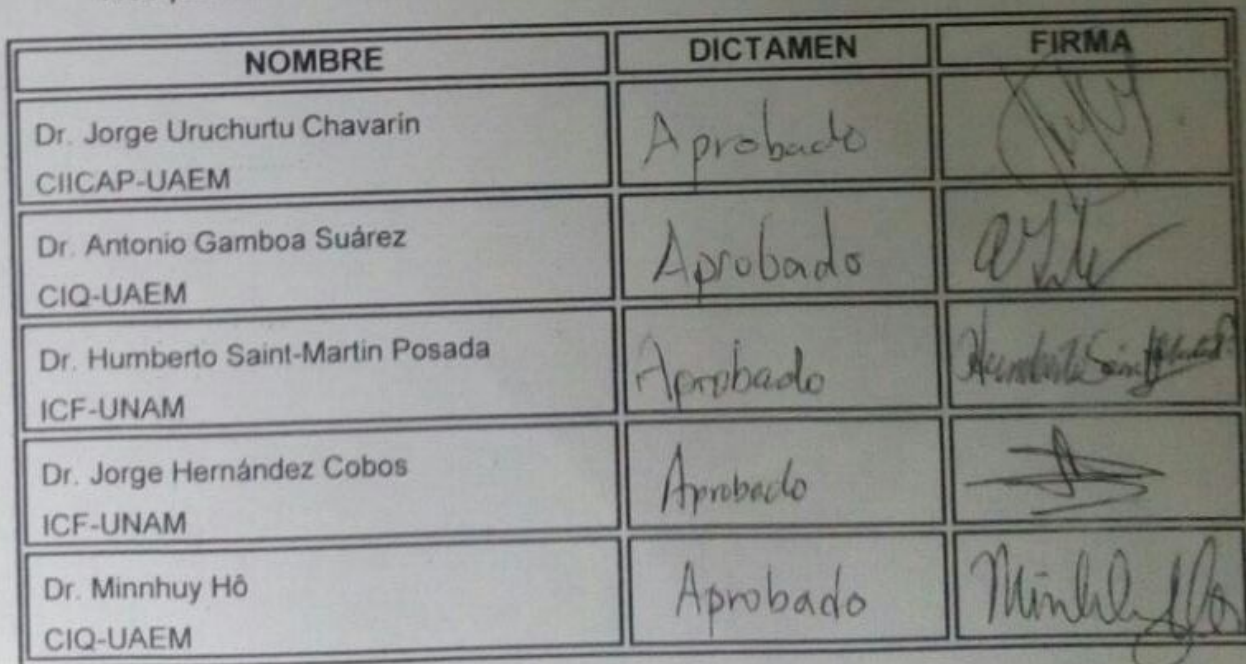 NOMBRE DICTAMEN FIRMA
Dr. Jorge Uruchurtu Chavarín
CIICAP-UAEM
Aprobado
Dr. Antonio Gamboa Suárez
CIQ-UAEM
Aprobado
Dr. Humberto Saint-Martin Posada
ICF-UNAM
Aprobado
Dr. Jorge Hernández Cobos
ICF-UNAM
Aprobado
Dr. Minnhuy Hô
CIQ-UAEM
Aprobado